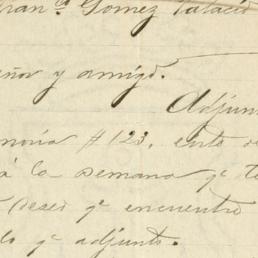 Fran.ᵃ Gomez Palacio
eñor y amigo.
Adjun
moria #123, esto
á la semana qᵉ t
deseo qᵉ encuentre
lo qᵉ adjunto.